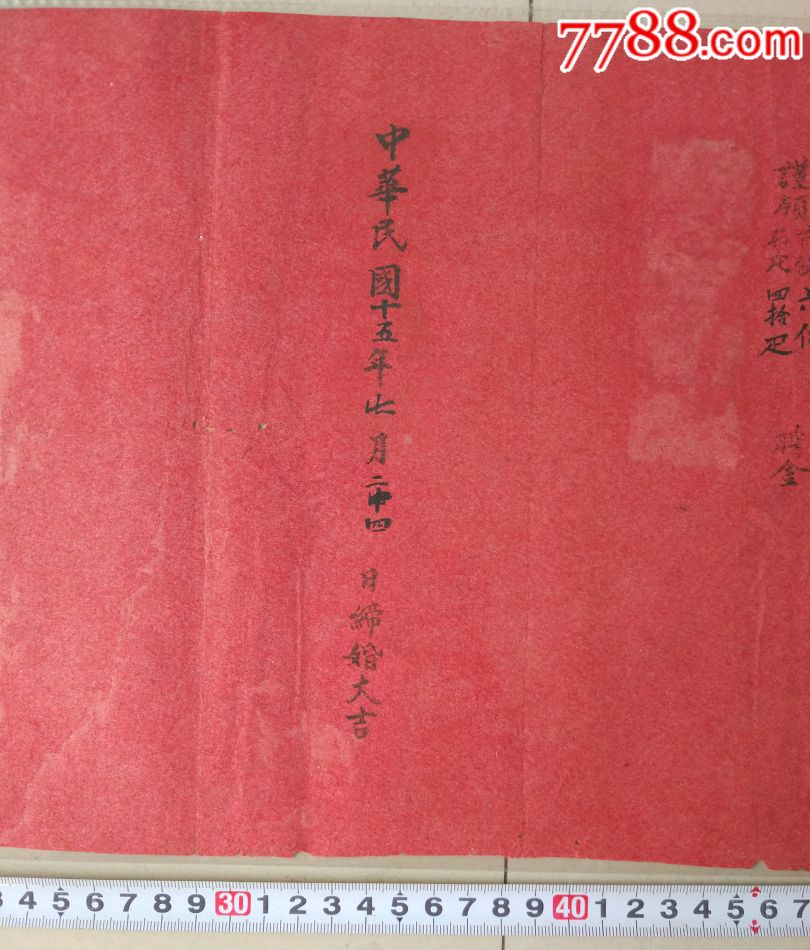 7788.com
謹領
四拾疋
聘金
中華民國十五年七月二十四 日締婚大吉
3 4 5 6 7 8 9 30 1 2 3 4 5 6 7 8 9 40 1 2 3 4 5 6 7